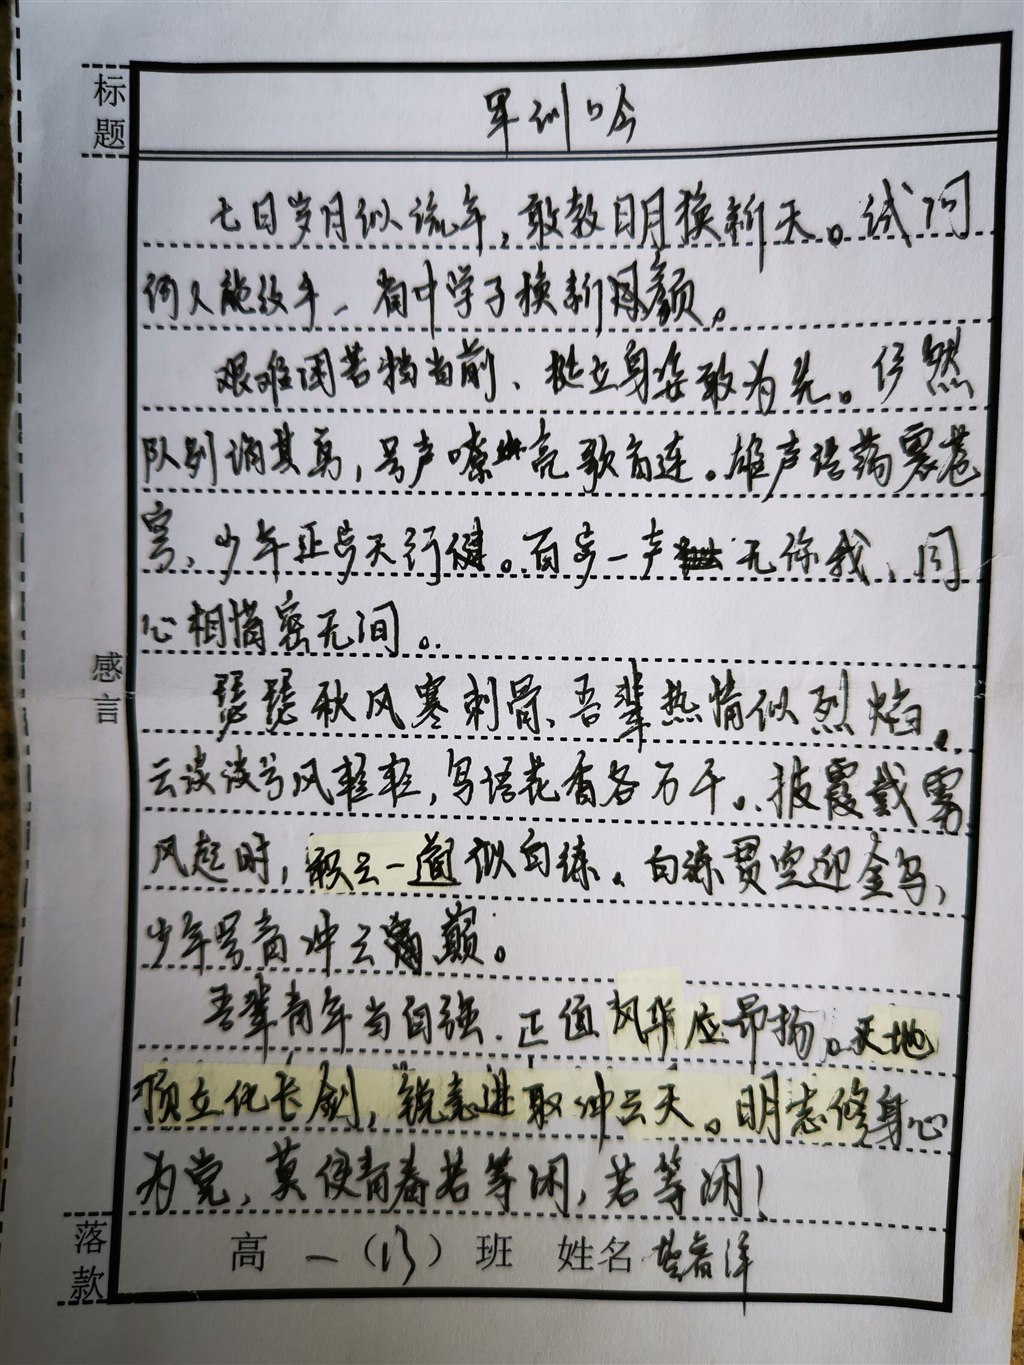 标题
军训吟
七日岁月似流年,敢教日月换新天。试问
何人能绘牛、省中学子换新颜。
艰难困苦挡当前、挺立身姿敢为先。俨然
队列诵其勇,号声嘹亮歌声连。雄声浩荡震苍
穹,少年正步天行健。百步一声无你我、同
心相惜密无间。
瑟瑟秋风寒刺骨、吾辈热情似烈焰。
云淡淡兮风轻轻,鸟语花香各万千。披霞戴雾
风起时,积云一道似白练。白练贯空迎金乌,
少年号音冲云巅。
吾辈青年当自强、正值风华应昂扬。天地
顶立化长剑,锐意进取冲云天。明志修身心
为党,莫使青春若等闲,若等闲!
感言
落款
高一(13)班 姓名 春洋